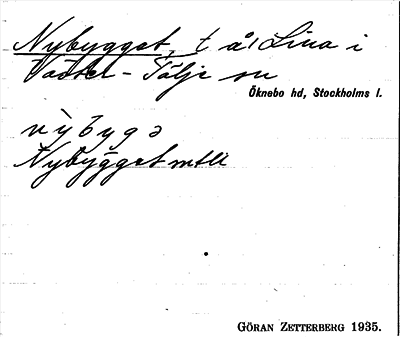 Nybygget, t å/ Lina i
Väster-Tälje sn
Öknebo hd, Stockholms l.
nỳbygə
Nybygget mtll
GÖRAN ZETTERBERG 1935.